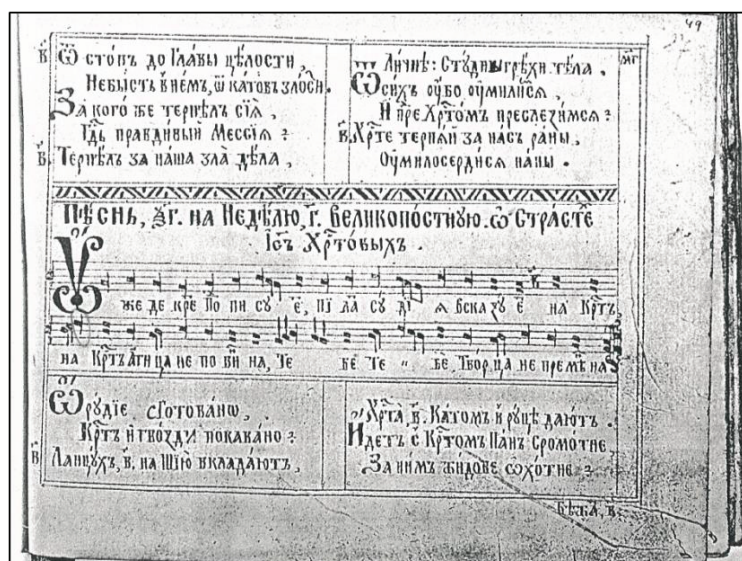 49
Ѿ стопъ до Главы цѣлости,
Небысть в нем, ѿ катовъ злости.
За кого же терпѣлъ сїѧ,
Гдь правдивый Мессїѧ:
в҃. Терпѣлъ за наша зла дѣла,
мг
Личнѣ: Студныгрѣхи тѣла.
Ѿ сихъ ѹбо ѹмилисѧ,
И пре Хрⷭтомъ преслезимсѧ:
в҃. Хрⷭте терпѧй за нас раны,
Ѹмилосердисѧ паны.
Пѣснь, на Недѣлю, г҃. великопостнꙋю. ѡ Страстѣ
Іс҃ъ Хрⷭтовыхъ.
Ѹ
же де кре то пи сꙋ е, пї ла сꙋ дї ѧ вска зꙋ е на Крⷭтъ,
на Крⷭтъ агн ца не по ви на, Те бе Те " бе Твор ца не премѣ на
Ѡрꙋдїе сготованѡ,
Крⷭтъ и гвозди покавано:
в҃ Ланцꙋхъ, в҃. на Шїю вкладаютъ,
Хрⷭта, в҃. Катомъ и рꙋцѣ даютъ.
Идетъ с Крⷭтомъ Панъ сромотне
За нимъ жидове ѡхотне:
Бѣжа, в҃.